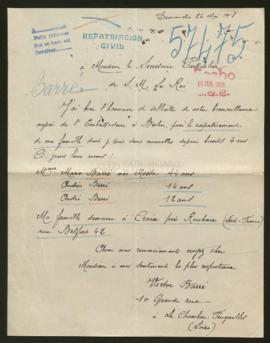 Dimanche 26 Mai 1918
REPATRIACIÓN
CIVIL
57475
à Monsieur le Secrétaire Particulier
Barré
de S. M. Le Roi
J'ai bien l'honneur de solliciter de votre bienveillance
auprès de l'Ambassadeur à Berlin pour le rapatriement
de ma famille dont je suis sans nouvelles depuis bientôt 4 ans
Ci-joint leur noms:
Mme Marie Barré née 44 ans
Andrée Barré 14 ans
André Barré 12 ans
Ma famille demeure à Croix près Roubaix (Nord, France)
rue Belfort 42
Avec mes remerciements croyez cher
Monsieur à mes sentiments les plus respectueux
Victor Barré
10 Grande rue
à Le Chambon Feugerolles
(Loire)